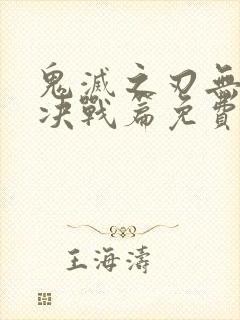 鬼滅之刃無
决戰篇免費
王海濤